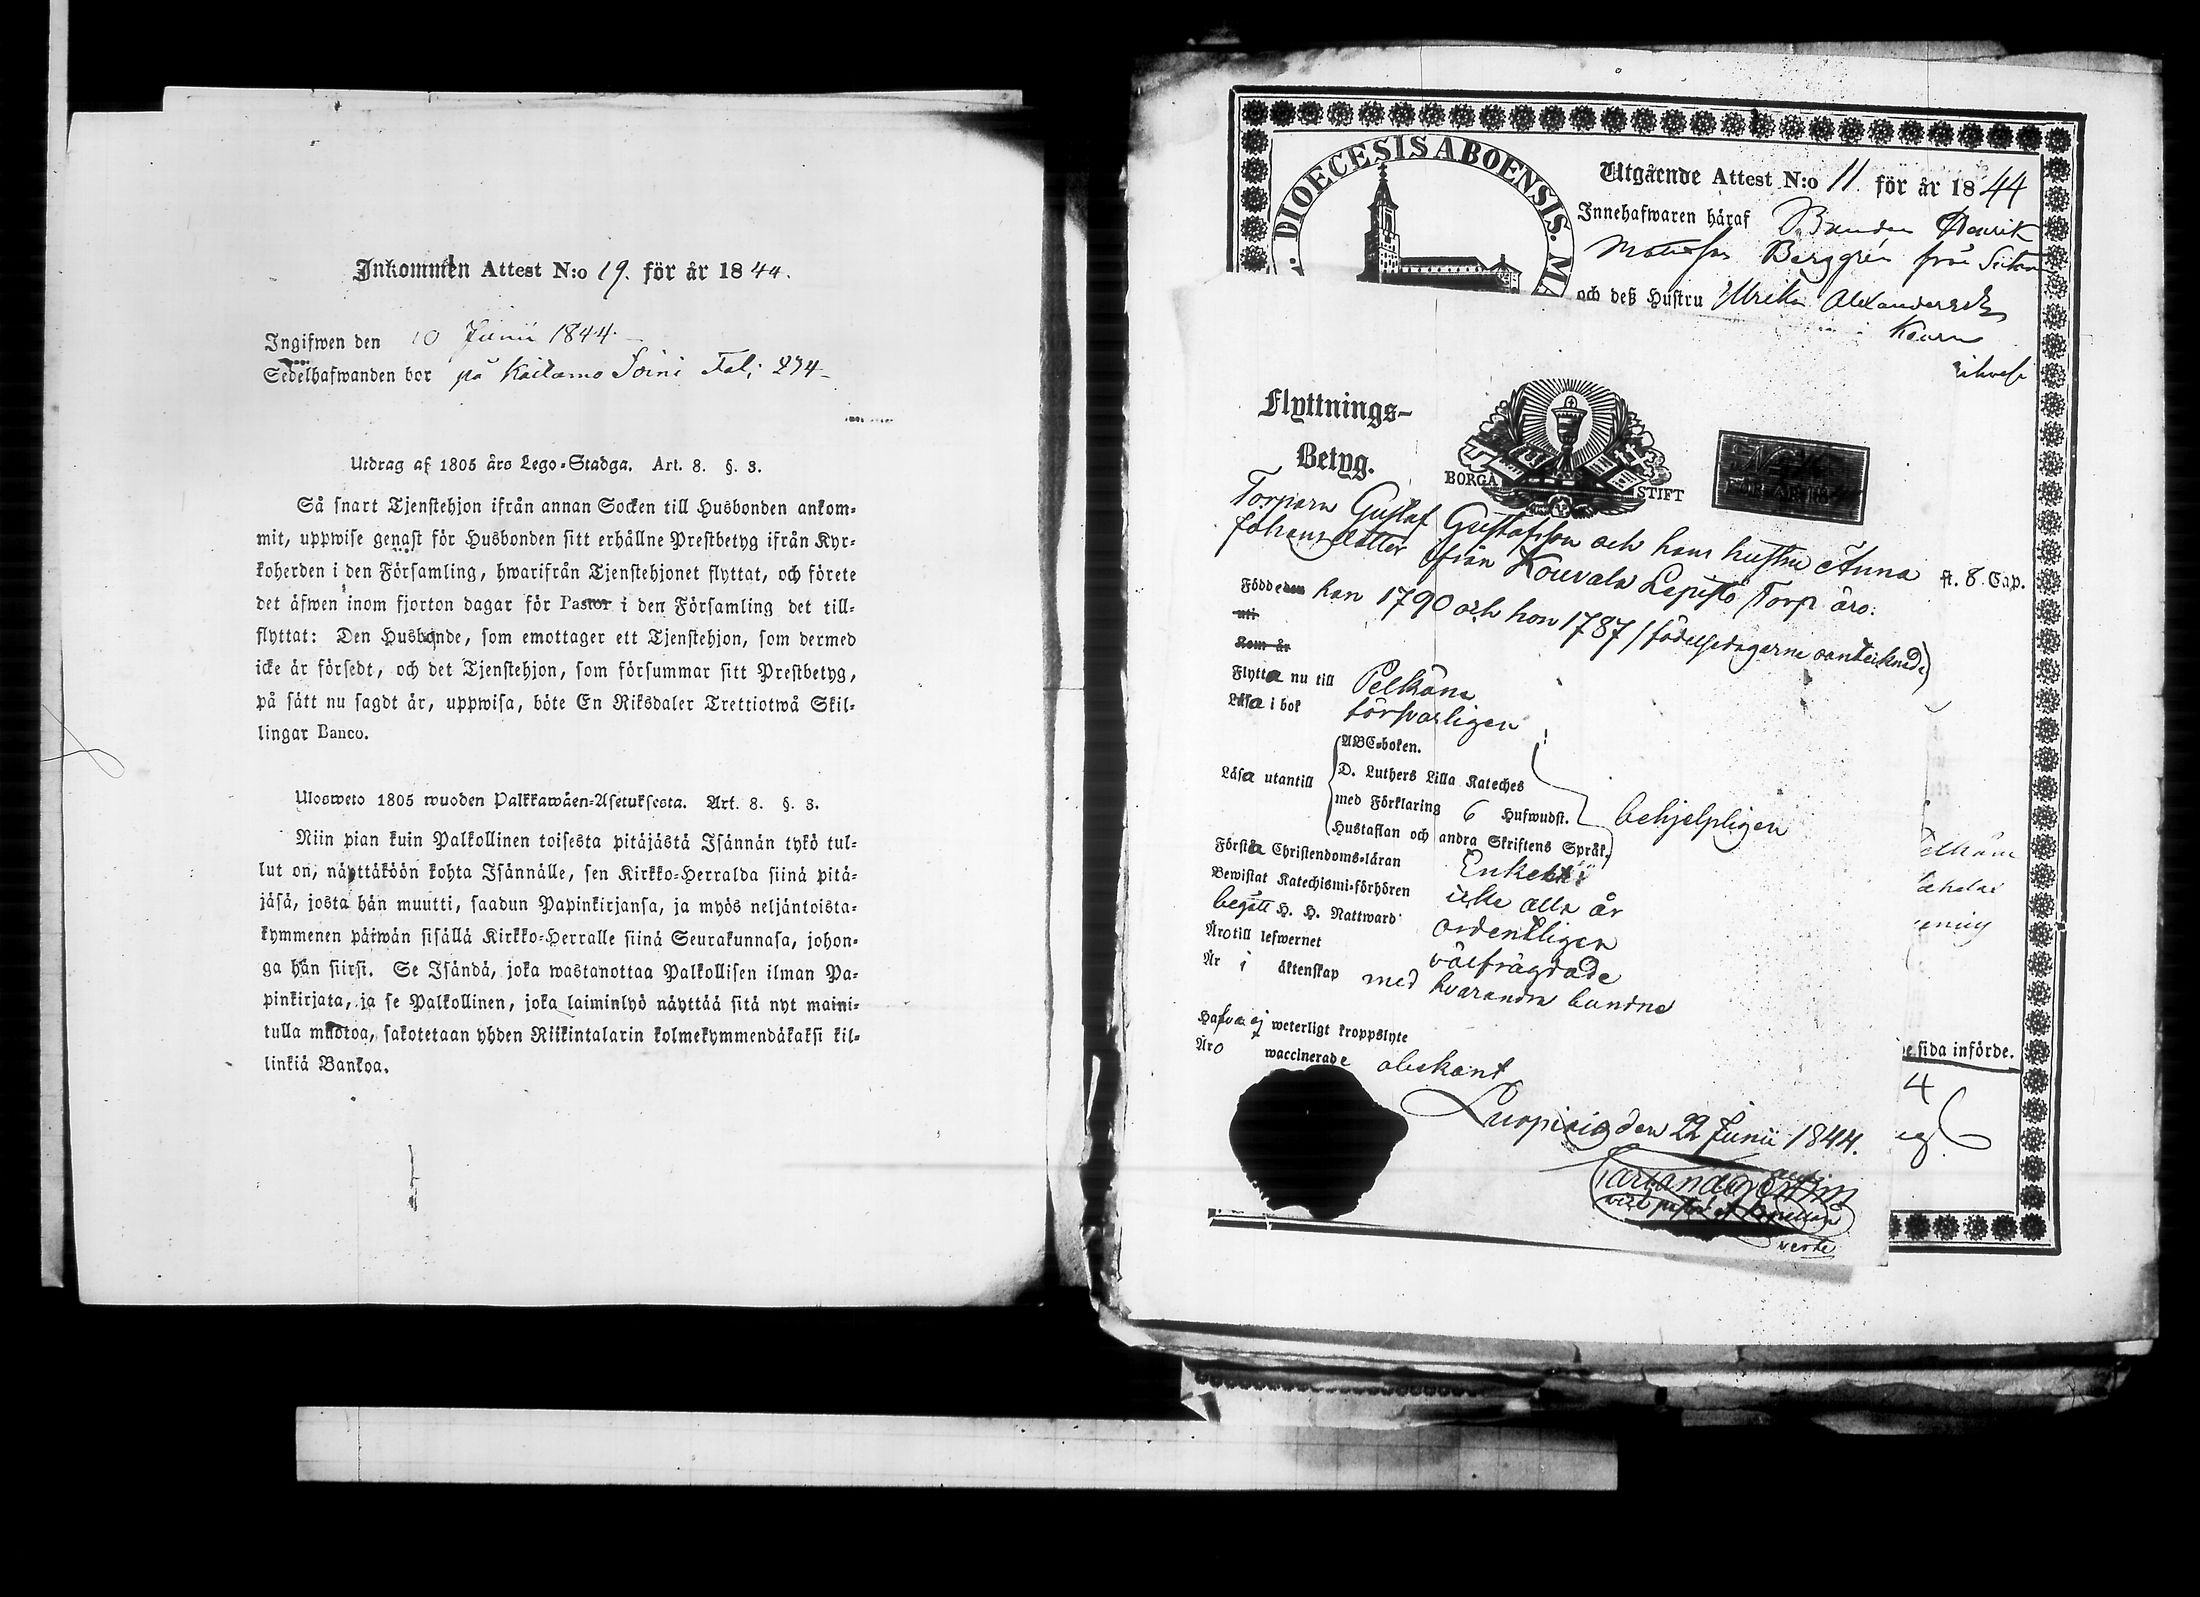 Inkommen Attest N:o 19. för år 1844.
Ingifwen den 10 Junii 1844.
Sedelhafwanden bor på Kaitamo Soini Fol; 234
Utdrag af 1805 års Lego-Stadga. Art. 8. §. 3.
Så snart Tjenstehjon ifrån annan Socken till Husbonden ankom-
mit, uppwise genast för Husbonden sitt erhållne Prestbetyg ifrån Kyr-
koherden i den Församling, hwarifrån Tjenstehjonet flyttat, och förete
det äfwen inom fjorton dagar för Pastor i den Församling det till-
flyttat: Den Husbonde, som emottager ett Tjenstehjon, som dermed
icke är försedt, och det Tjenstehjon, som försummar sitt Prestbetyg,
på sätt nu sagdt är, uppwisa, böte En Riksdaler Trettiotwå Skil-
lingar Banco.
Ulosweto 1805 wuoden Palkkawäen-Asetuksesta. Art. 8. §. 3.
Niin pian kuin Palkollinen toisesta pitäjästä Isännän tykö tul-
lut on, näyttäköön kohta Isännälle, sen Kirkko-Herralda siinä pitä-
jäsä, josta hän muutti, saadun Papinkirjansa, ja myös neljäntoista-
kymmenen päiwän sisällä Kirkko-Herralle siinä Seurakunnasa, johon-
ga hän siirsi. Se Isändä, joka wastanottaa Palkollisen ilman Pa-
pinkirjata, ja se Palkollinen, joka laiminlyö näyttää sitä nyt maini-
tulla muotoa, sakotetaan yhden Riikintalarin kolmekymmendäkaksi kil-
linkiä Bankoa.
DIOECESIS ABOENSIS. MA
Utgående Attest N:o 11 för år 1844
Innehafwaren häraf Bonden Henrik
Matsson Berggrén från
och deß Hustru Ulrika Alexandersdr
Flyttnings-
Betyg.
BORGÅ STIFT
Torparn Gustaf Gustafsson och hans hustru Anna
st. 8. Cap.
Johansdotter ifrån Kouvala Lepistö Torp äro:
Födde han 1790 och hon 1787 (födelsedagarne oanteknade)
uti
Kom år
Flytta nu till Pelkäne
Läsa i bok försvarligen
Läsa utantill
ABC-boken.
D. Luthers Lilla Kateches
med Förklaring 6 Hufwudst.
Hustaflan och andra Skriftens Språk.
behjelpligen
Förstå Christendoms-läran Enkelt
Bewistat Katechismi-förhören icke alla år
begått H. H. Nattward ordentligen
Äro till lefwernet välfrägdade
Är i äktenskap med hvarandra bundne
Hafva ej weterligt kroppslyte
Äro waccinerade obekant
Luopiois den 22 Junii 1844.
e sida införde.
4